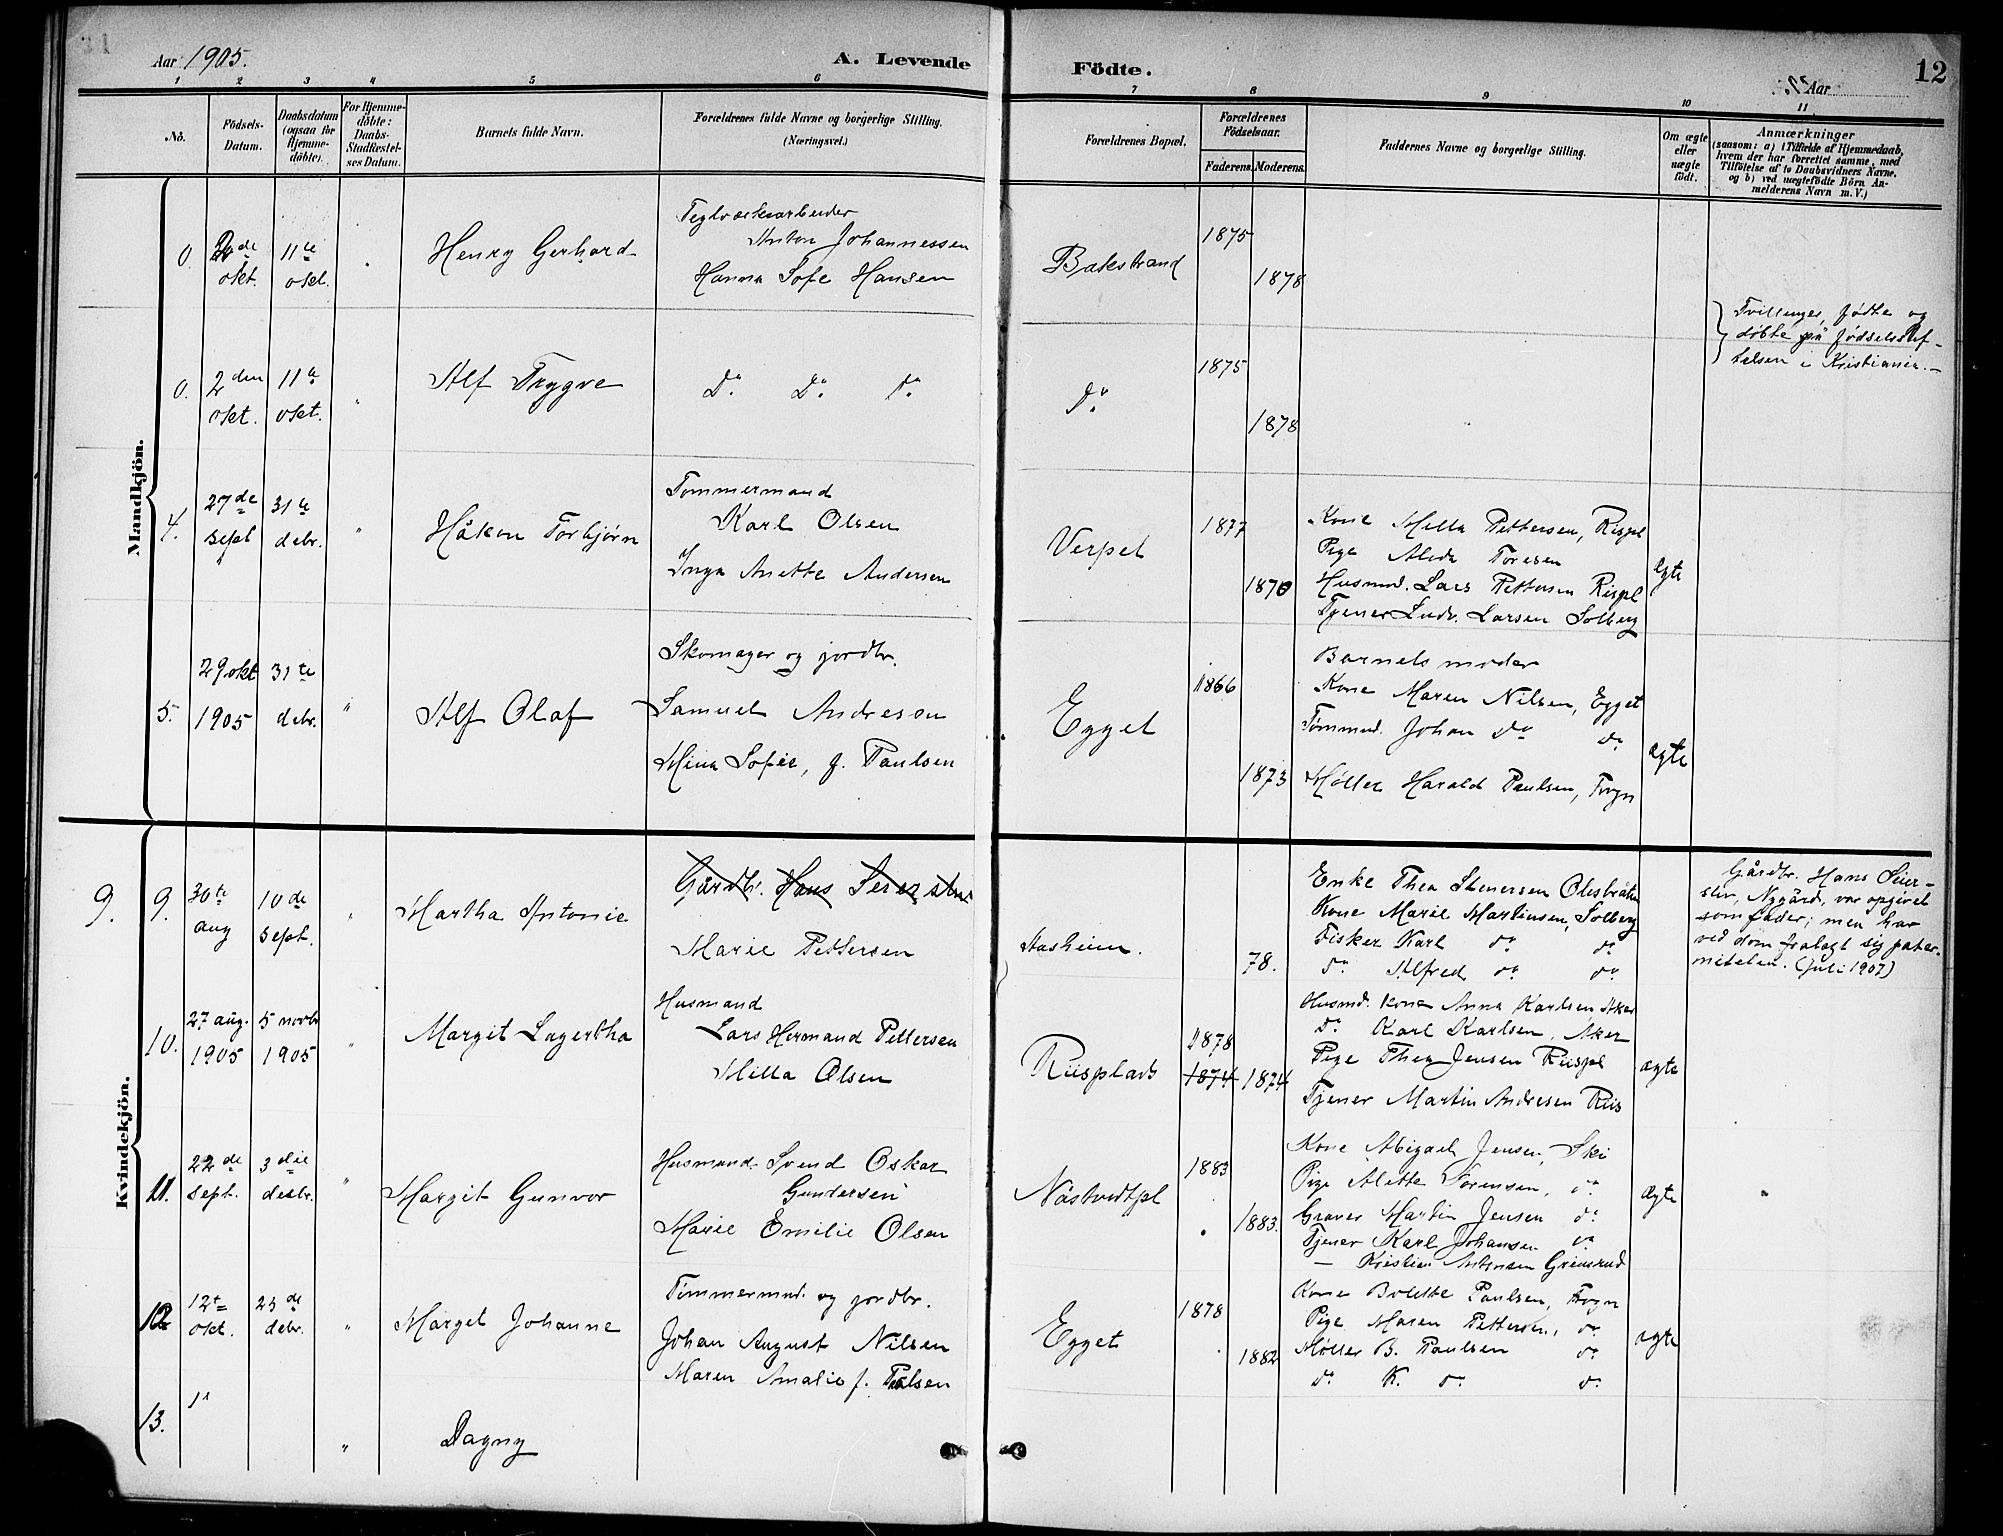 Aar 1905.
A. Levende
Födte.
Aar
12
1 2 3 4 5 6
7 8 9 10 11
No.
Födsels-Datum.
Daabsdatum (ogsaa for Hjemme-döbte).
For Hjemme-döbte: Daabs-Stadfæstel-ses Datum.
Barnets fulde Navn.
Forældrenes fulde Navne og borgerlige Stilling.
(Næringsvei.)
Forældrenes Bopæl.
Forældrenes Födselsaar.
Faderens. Moderens.
Faddernes Navne og borgerlige Stilling.
Om ægte eller uægte födt.
Anmærkninger
(saasom: a) i Tilfælde af Hjemmedaab,
hvem der har forrettet samme, med
Tilföielse af to Daabsvidners Navne.
og b) ved uægtefödte Börn An-
melderens Navn m. V.)
Mandkjön.
0. okt. 11te okt. "
Henry Gerhard
Teglværksarbeider
Anton Johannessen
Hanna Sofie Hansen
Bakstrand
1875
1878
Tvillinger, fødte og
døbte på Fødselsstif-
telsen i Kristiania. –
0. 2den okt. 11te okt. "
Alf Trygve
Do. Do. Do.
Do.
1875
1878
4. 27de sept 31te debr. "
Håkon Torbjørn
Tømmermand
Karl Olsen
Inga Anette Andersen
Verpet
1877
1870
Kone Milla Pettersen, Rispl
Pige Alida Toresen
Husmd. Lars Pettersen Rispl
Tjener Ludv. Larsen Solberg
ægte
5. 29 okt 1905 31te debr. "
Alf Olaf
Skomager og jordbr.
Samuel Andresen
Mina Sofie, f. Paulsen
Egget
1866
1873
Barnets moder
Kone Maren Nilsen, Egget
Tømmd. Johan Do Do.
Møller Harald Paulsen, Frogn
ægte
Kvindekjön.
9. 9. 30te aug 10de sept. "
Martha Antonie
Gårdbr. Hans
Marie Pettersen
Aasheim.
78.
Enke Thea Stenersen Olesbråten
Kone Marie Martinsen, Solberg
Fisker Karl do. do.
do. Alfred do. do.
Gårdbr. Hans Seier-
sten, Nygård, var opgivet
som fader; men har
ved dom fralagt sig pater-
niteten. (Juli 1907)
10. 27 aug. 1905 5 novbr 1905 "
Margit Lagertha
Husmand
Lars Hermand Pettersen
Milla Olsen
Riisplads
1878
1874 1874
Husmd. kone Anna Karlsen, Aker
Do. Karl Karlsen, Aker
Pige Thea Jensen Riispl
Tjener Martin Andresen Riis
ægte
11. 22de sept. 3die desbr. "
Margit Gunvor
Husmand Svend Oskar
Gundersen
Marie Emilie Olsen
Nästvedtpl
1883
1883.
Kone Abigael Jensen, Ski
Pige Alette Sørensen, do.
Graver Martin Jensen do.
Tjener Karl Johansen do.
— Kristian Antonsen Greusrud
ægte
"
12. 12te okt. 23de debr. "
Marget Johanne
Tømmermd. og jordbr.
Johan August Nilsen
Maren Amalie f. Palsen
Egget
1878
1882
Kone Bolette Paulsen, Frogn
Pige Maren Pettersen, do.
Møller B. Paulsen do.
do. K. do. do.
ægte
13. "
Dagny